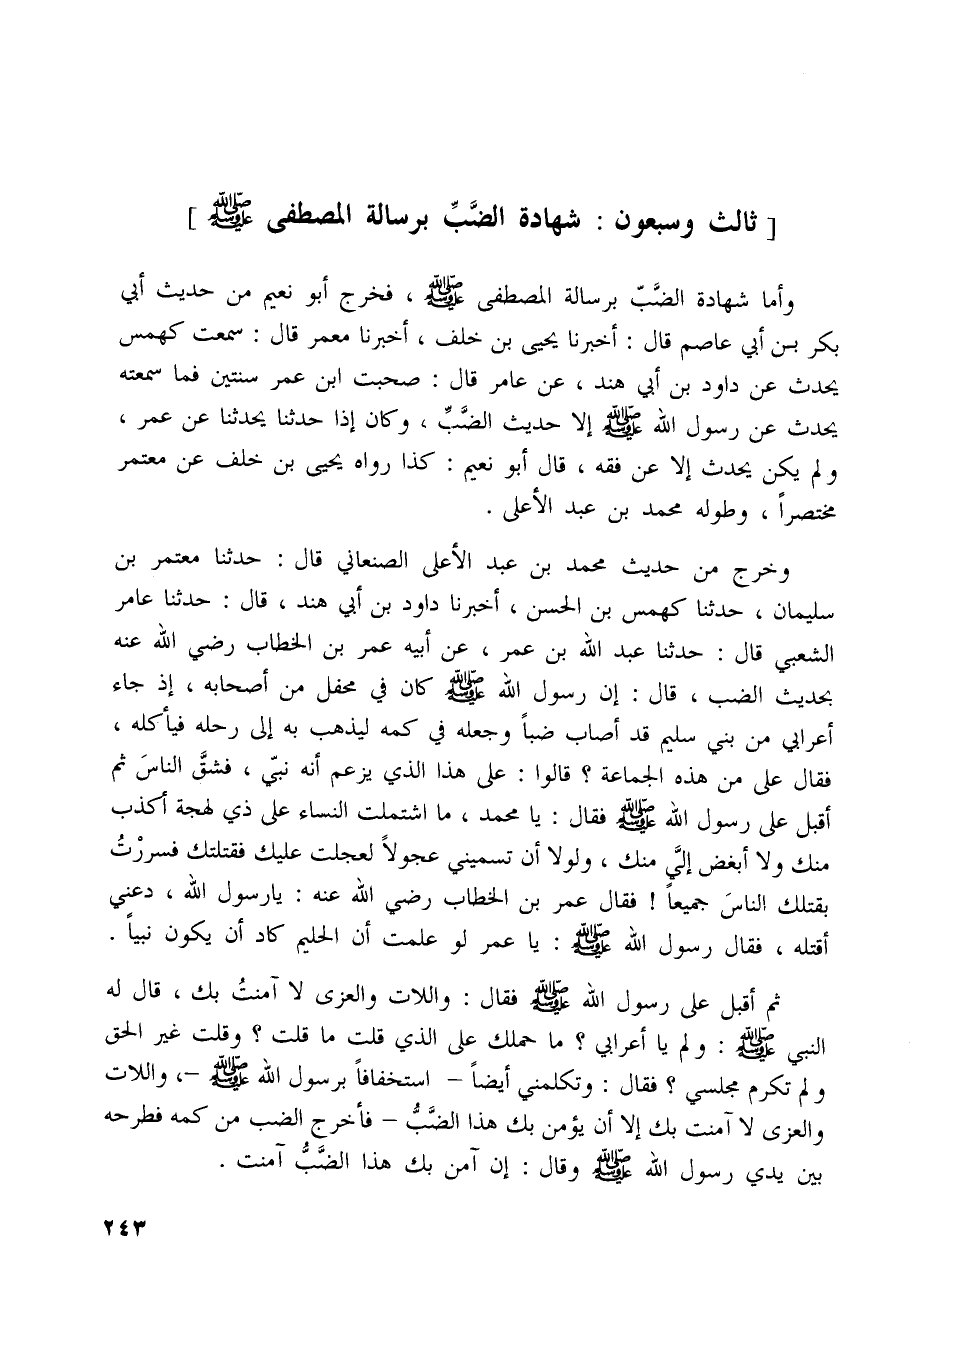 [ ثالث وسبعون : شهادة الضَّبِّ برسالة المصطفى ﷺ ]
وأما شهادة الضَّبّ برسالة المصطفى ﷺ ، فخرج أبو نعيم من حديث أبي
بكر بـن أبي عاصم قال : أخبرنا يحيى بن خلف ، أخبرنا معمر قال : سمعت كهمس
يحدث عن داود بن أبي هند ، عن عامر قال : صحبت ابن عمر سنتين فما سمعته
يحدث عن رسول الله ﷺ إلا حديث الضَّبِّ ، وكان إذا حدثنا يحدثنا عن عمر ،
ولم يكن يحدث إلا عن فقه ، قال أبو نعيم : كذا رواه يحيى بن خلف عن معتمر
مختصراً ، وطوله محمد بن عبد الأعلى .
وخرج من حديث محمد بن عبد الأعلى الصنعاني قال : حدثنا معتمر بن
سليمان ، حدثنا كهمس بن الحسن ، أخبرنا داود بن أبي هند ، قال : حدثنا عامر
الشعبي قال : حدثنا عبد الله بن عمر ، عن أبيه عمر بن الخطاب رضي الله عنه
بحديث الضب ، قال : إن رسول الله ﷺ كان في محفل من أصحابه ، إذ جاء
أعرابي من بني سليم قد أصاب ضباً وجعله في كمه ليذهب به إلى رحله فيأكله ،
فقال على من هذه الجماعة ؟ قالوا : على هذا الذي يزعم أنه نبيّ ، فشقَّ الناسَ ثم
أقبل على رسول الله ﷺ فقال : يا محمد ، ما اشتملت النساء على ذي لهجة أكذب
منك ولا أبغض إليَّ منك ، ولولا أن تسميني عجولاً لعجلت عليك فقتلتك فسررْتُ
بقتلك الناسَ جميعاً ! فقال عمر بن الخطاب رضي الله عنه : يارسول الله ، دعني
أقتله ، فقال رسول الله ﷺ : يا عمر لو علمت أن الحليم كاد أن يكون نبياً .
ثم أقبل على رسول الله ﷺ فقال : واللات والعزى لا آمنتُ بك ، قال له
النبي ﷺ : ولم يا أعرابي ؟ ما حملك على الذي قلت ما قلت ؟ وقلت غير الحق
ولم تكرم مجلسي ؟ فقال : وتكلمني أيضاً – استخفافاً برسول الله ﷺ –، واللات
والعزى لا آمنت بك إلا أن يؤمن بك هذا الضَّبُّ – فأخرج الضب من كمه فطرحه
بين يدي رسول الله ﷺ وقال : إن آمن بك هذا الضَّبُّ آمنت .
٢٤٣